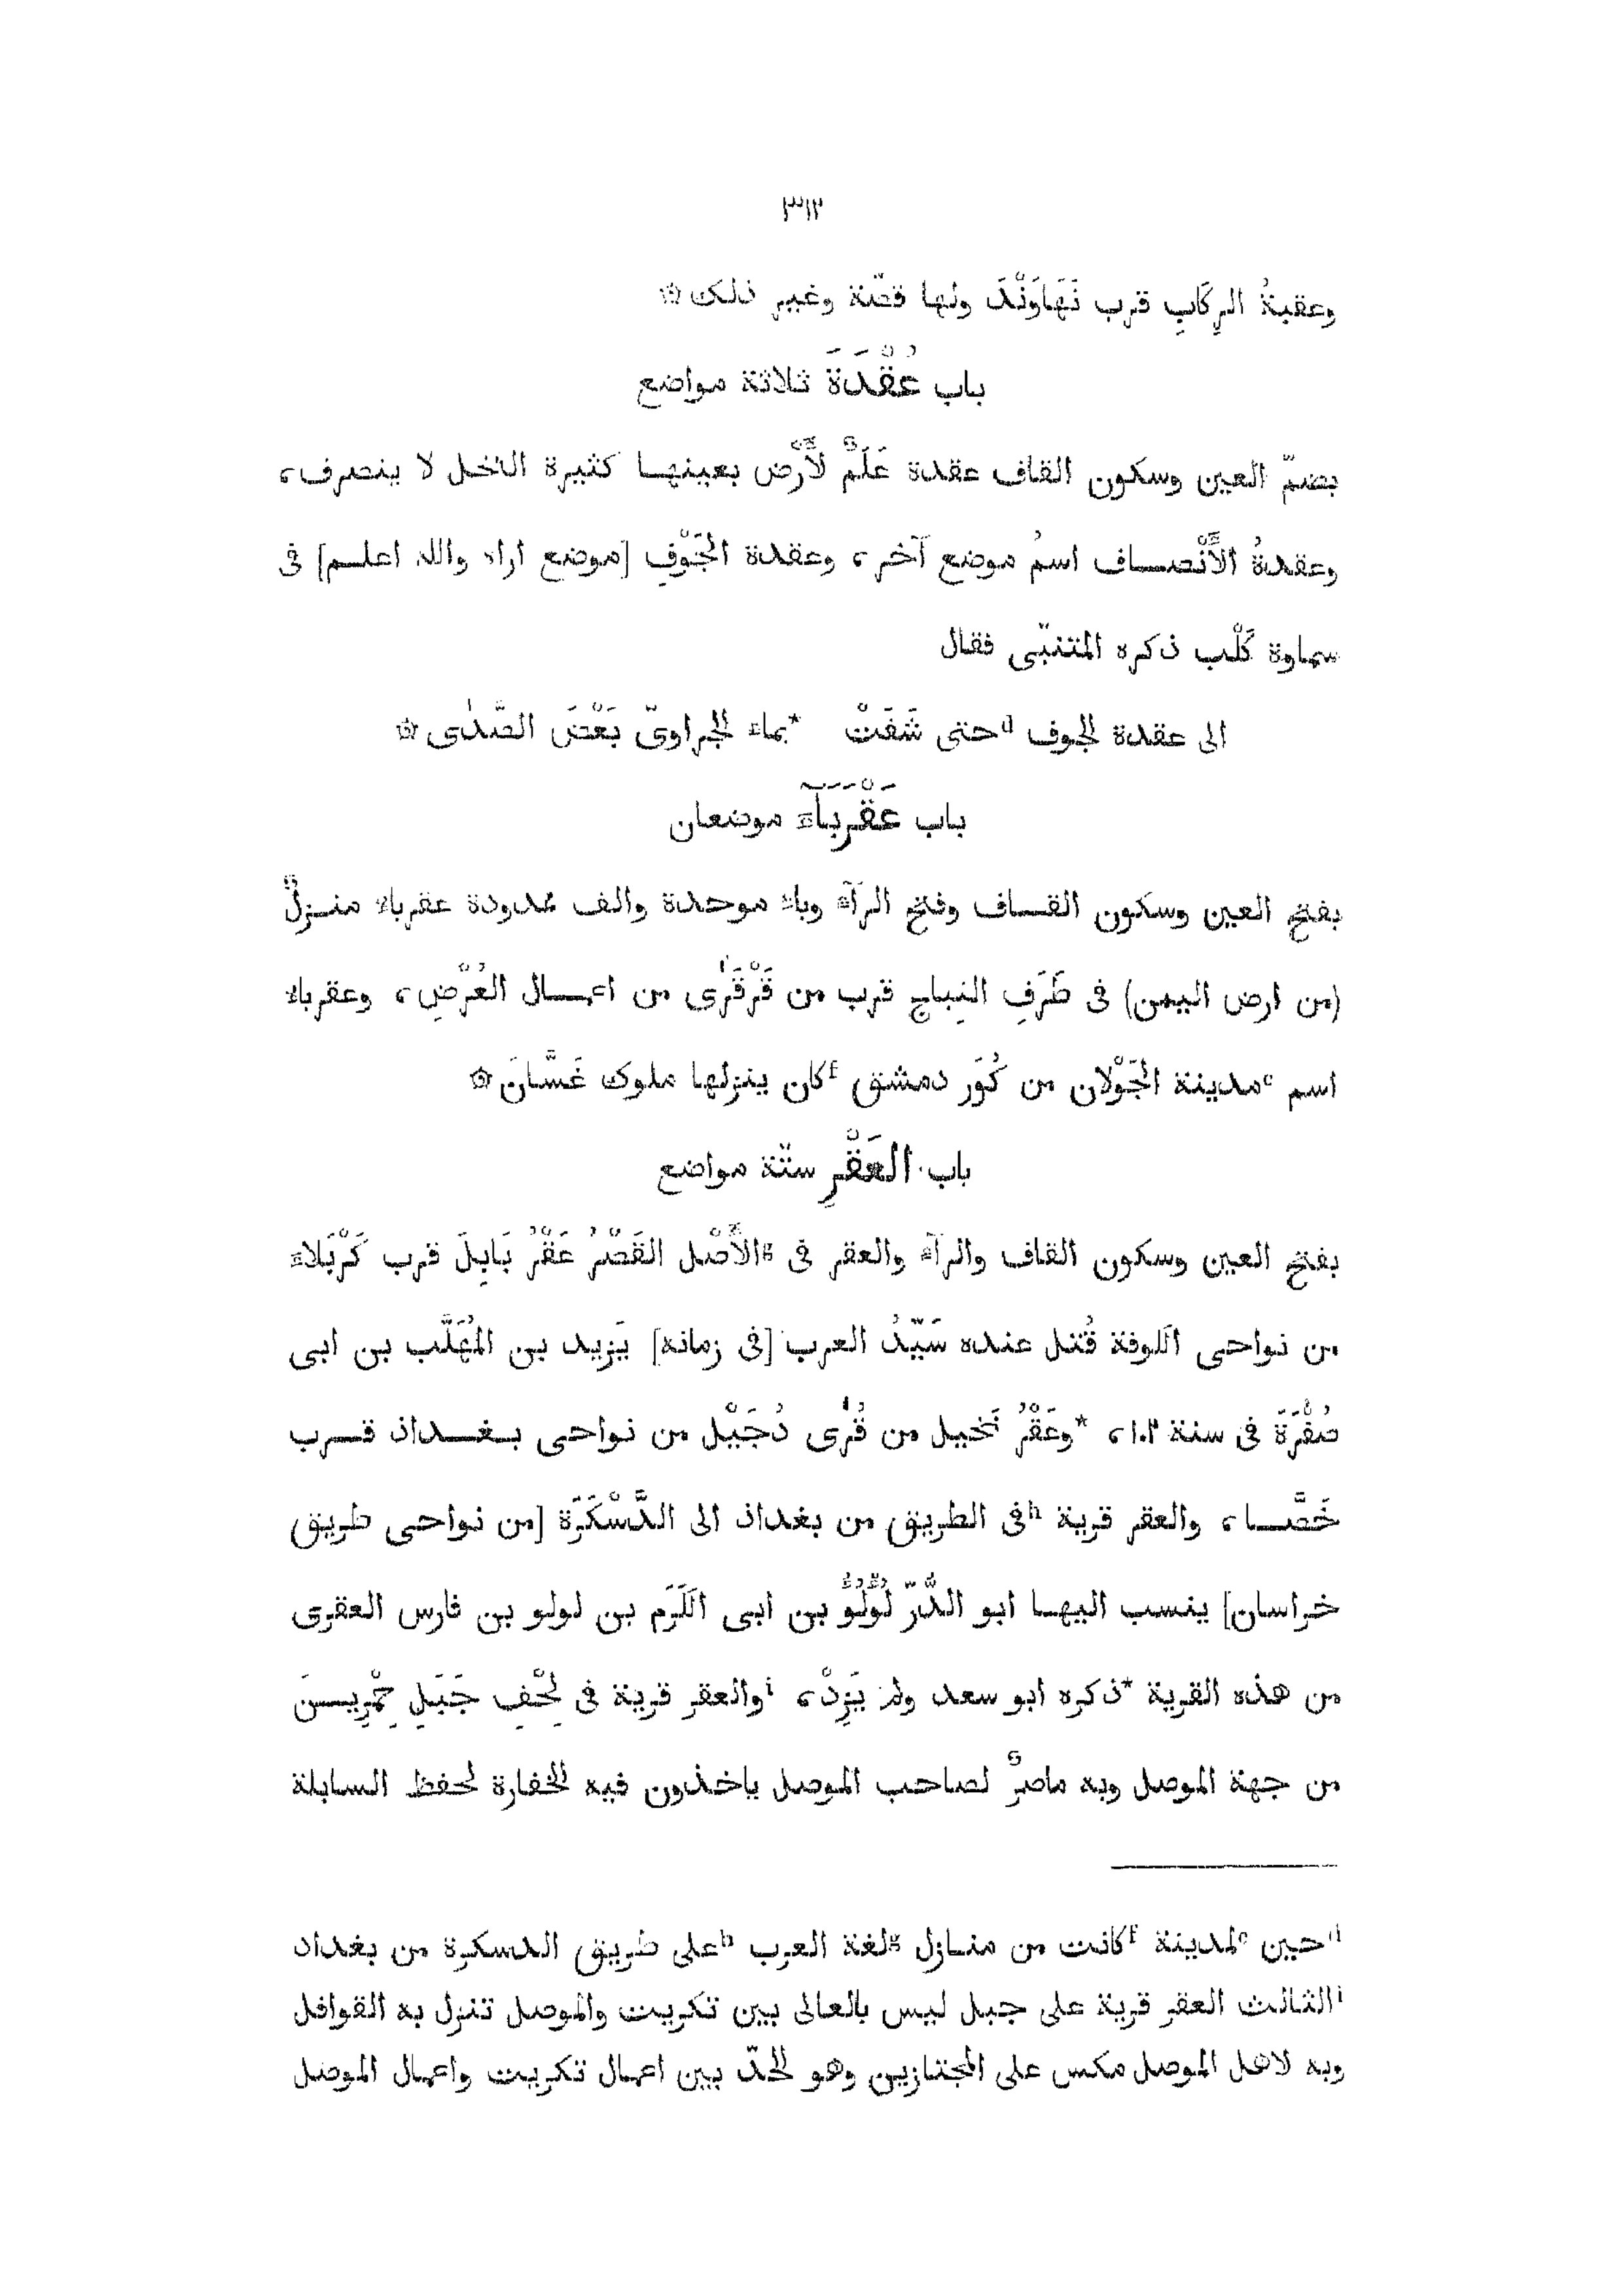 ٣١٢
وعقبةُ الرِكَابِ قرب نَهَاوَنْدَ ولها قصّة وغير ذلك ۞
باب عُقْدَةَ ثلاثة مواضع
بضمّ العين وسكون القاف عقدة عَلَمٌ لأَرْض بعينها كثيرة النخل لا ينصرف،
وعقدةُ الأَنْصاف اسمُ موضع آخر، وعقدة الجَوْفِ [موضع اراه والله اعلم] فى
سماوة كَلْب ذكره المتنبّى فقال
الى عقدة الجوف dحتى شَفَتْ *بماء الجراوىّ بَعْضَ الصَّدٰى ۞
باب عَقْرَبَآءَ موضعان
بفتح العين وسكون القاف وفتح الرآء وباء موحدة والف ممدودة عقرباء منزلٌ
(من ارض اليمن) فى طَرَفِ النِباج قرب من قَرْقَرٰى من اعمال العُرْضِ، وعقرباء
اسم eمدينة الجَوْلان من كُوَر دمشق fكان ينزلها ملوك غَسَّانَ ۞
باب العَقْرِ ستّة مواضع
بفتح العين وسكون القاف والرآء والعقر فى gالأَصْل القَصْرُ عَقْرُ بَابِلَ قرب كَرْبَلاءَ
من نواحى الكوفة قُتل عنده سَيّدُ العرب [فى زمانه] يَزيد بن المُهَلَّب بن ابى
صُفْرَةَ فى سنة ١٠٢، *وعَقْرُ نَخيل من قُرٰى دُجَيْل من نواحى بغداذ قرب
خَصَّا، والعقر قرية hفى الطريق من بغداذ الى الدَّسْكَرَة [من نواحى طريق
خراسان] ينسب اليها ابو الدُّرّ لُؤْلُؤُ بن ابى الكَرَم بن لولو بن فارس العقرى
من هذه القرية *ذكره ابو سعد ولم يَزِدْ، iوالعقر قرية فى لِحْفِ جَبَلِ حِمْرِينَ
من جهة الموصل وبه ماصرٌ لصاحب الموصل ياخذون فيه الخفارة لحفظ السابلة
dحين eلمدينة fكانت من منازل gلغة العرب hعلى طريق الدسكرة من بغداد
iالثالث العقر قرية على جبل ليس بالعالى بين تكريت والموصل تنزل به القوافل
وبه لاهل الموصل مكس على المجتازين وهو الحدّ بين اعمال تكريت واعمال الموصل